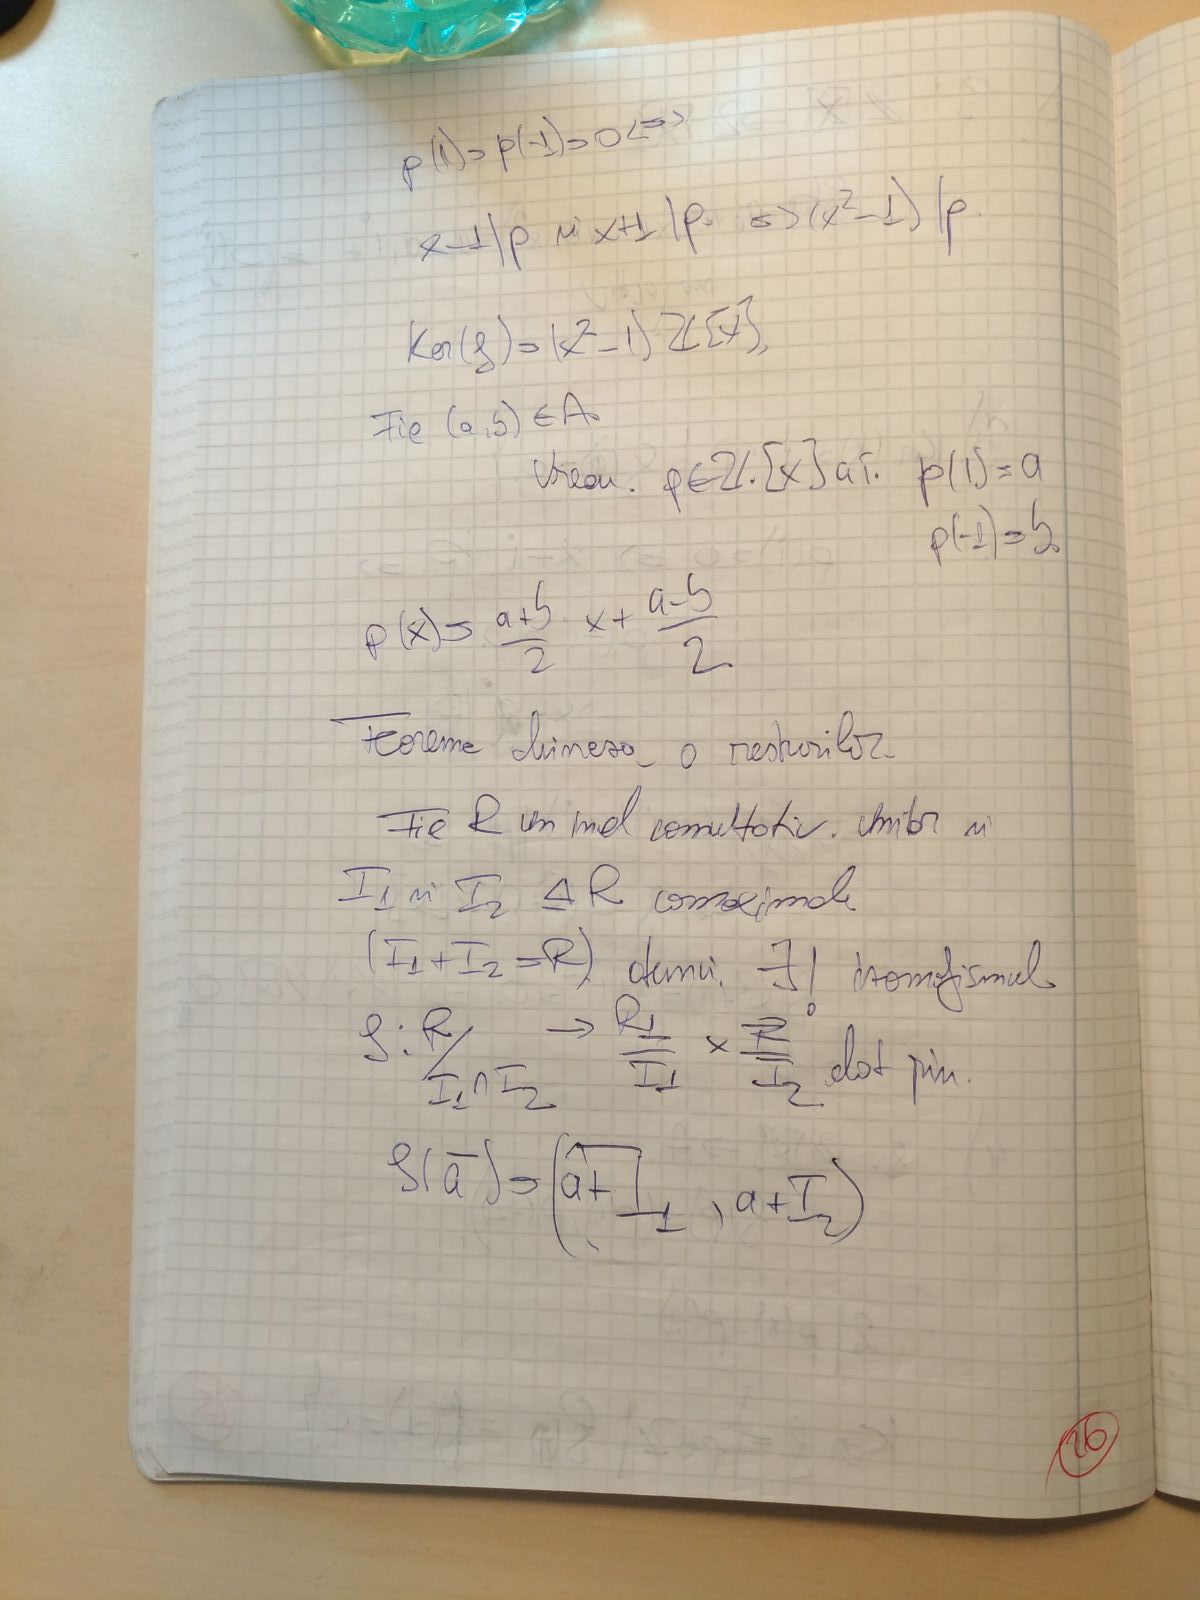 p(1) = p(-1) = 0 <=>
x-1 | p și x+1 | p. => (x²-1) | p.
Ker(f) = (x²-1) Z[x].
Fie (a,b) ∈ A.
Vreau. p ∈ Z[x] aî. p(1) = a
p(-1) = b.
p(x) = \frac{a+b}{2} x + \frac{a-b}{2}
Teorema chineza a resturilor
Fie R un inel comuttativ. unitar și
I₁ și I₂ ⊴ R comaximale
(I₁ + I₂ = R) atunci. ∃! izomofismul
f: R/I₁∩I₂ → \frac{R₁}{I₁} × \frac{R}{I₂} dat prin.
f(ā) = (a+I₁, a+I₂)
26